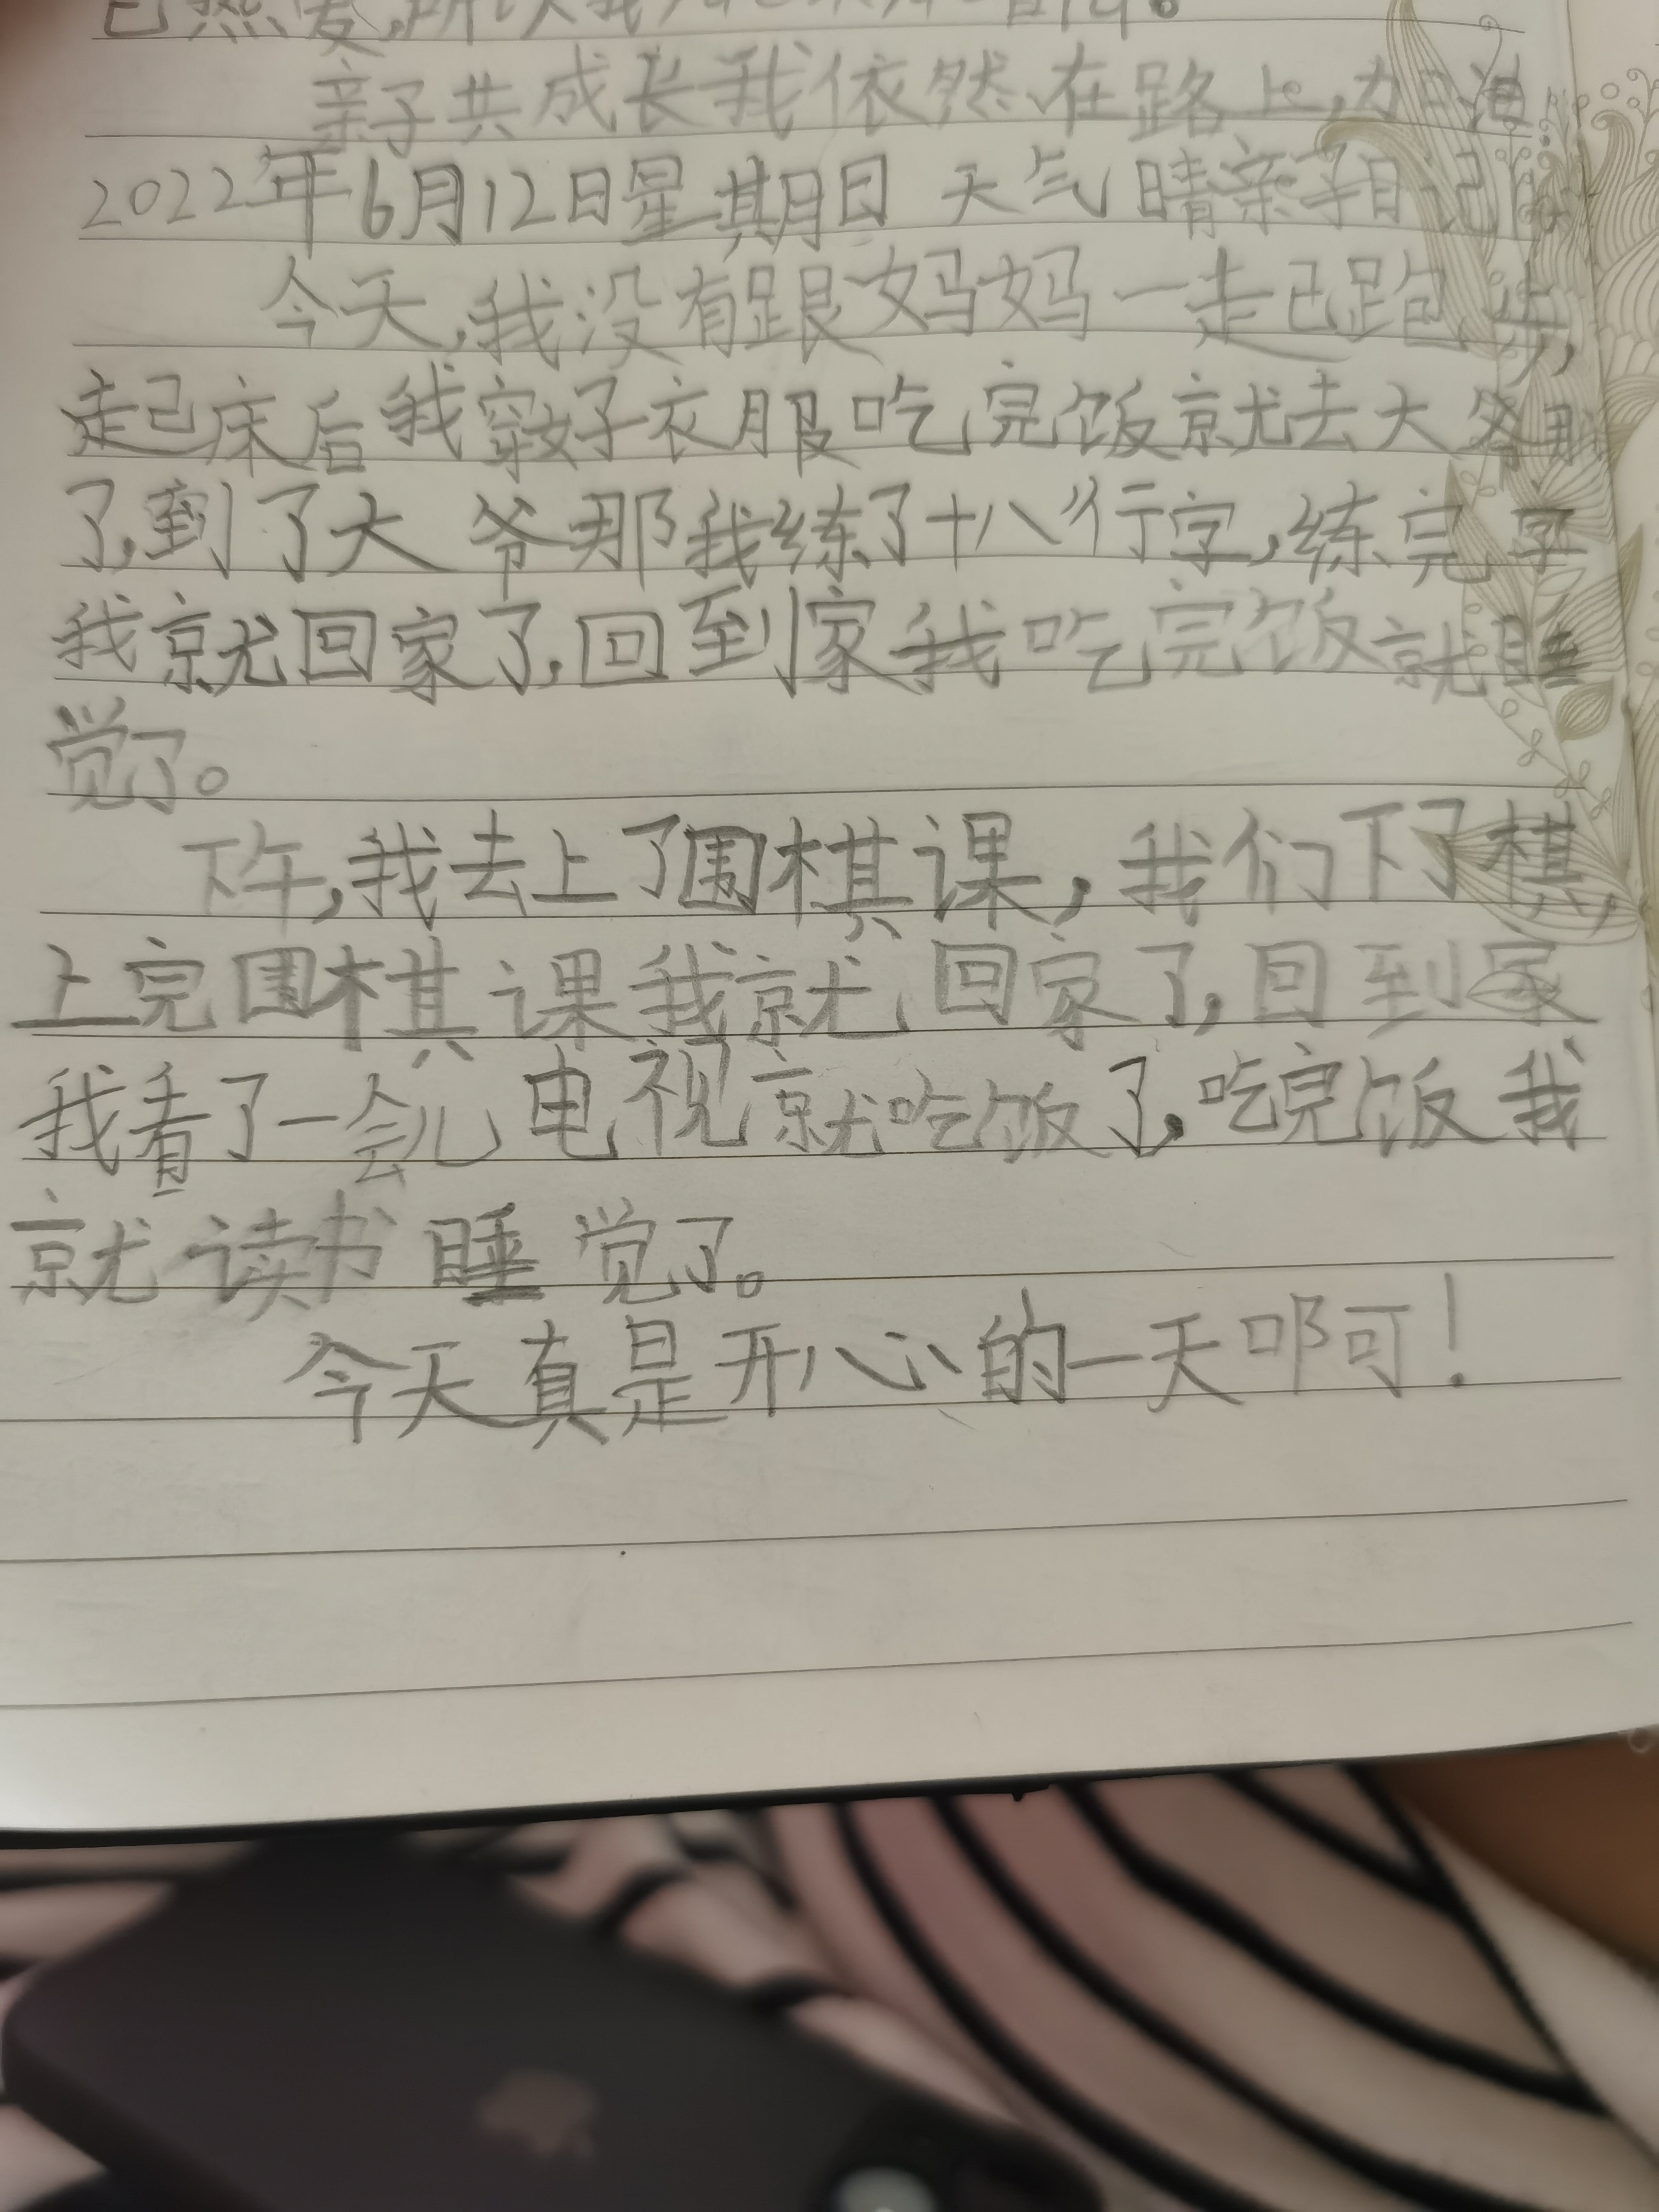 已热爱,所以我
亲子共成长我依然在路上,加油.
2022年6月12日星期日 天气 晴亲子日记
今天,我没有跟妈妈一起跑步,
起床后我穿好衣服吃完饭就去大爷那
了,到了大爷那我练了十八行字,练完字
我就回家了,回到家我吃完饭就睡
觉了。
下午,我去上了围棋课,我们下了棋,
上完围棋课我就回家了,回到家
我看了一会儿电视就吃饭了,吃完饭我
就读书睡觉了。
今天真是开心的一天啊!